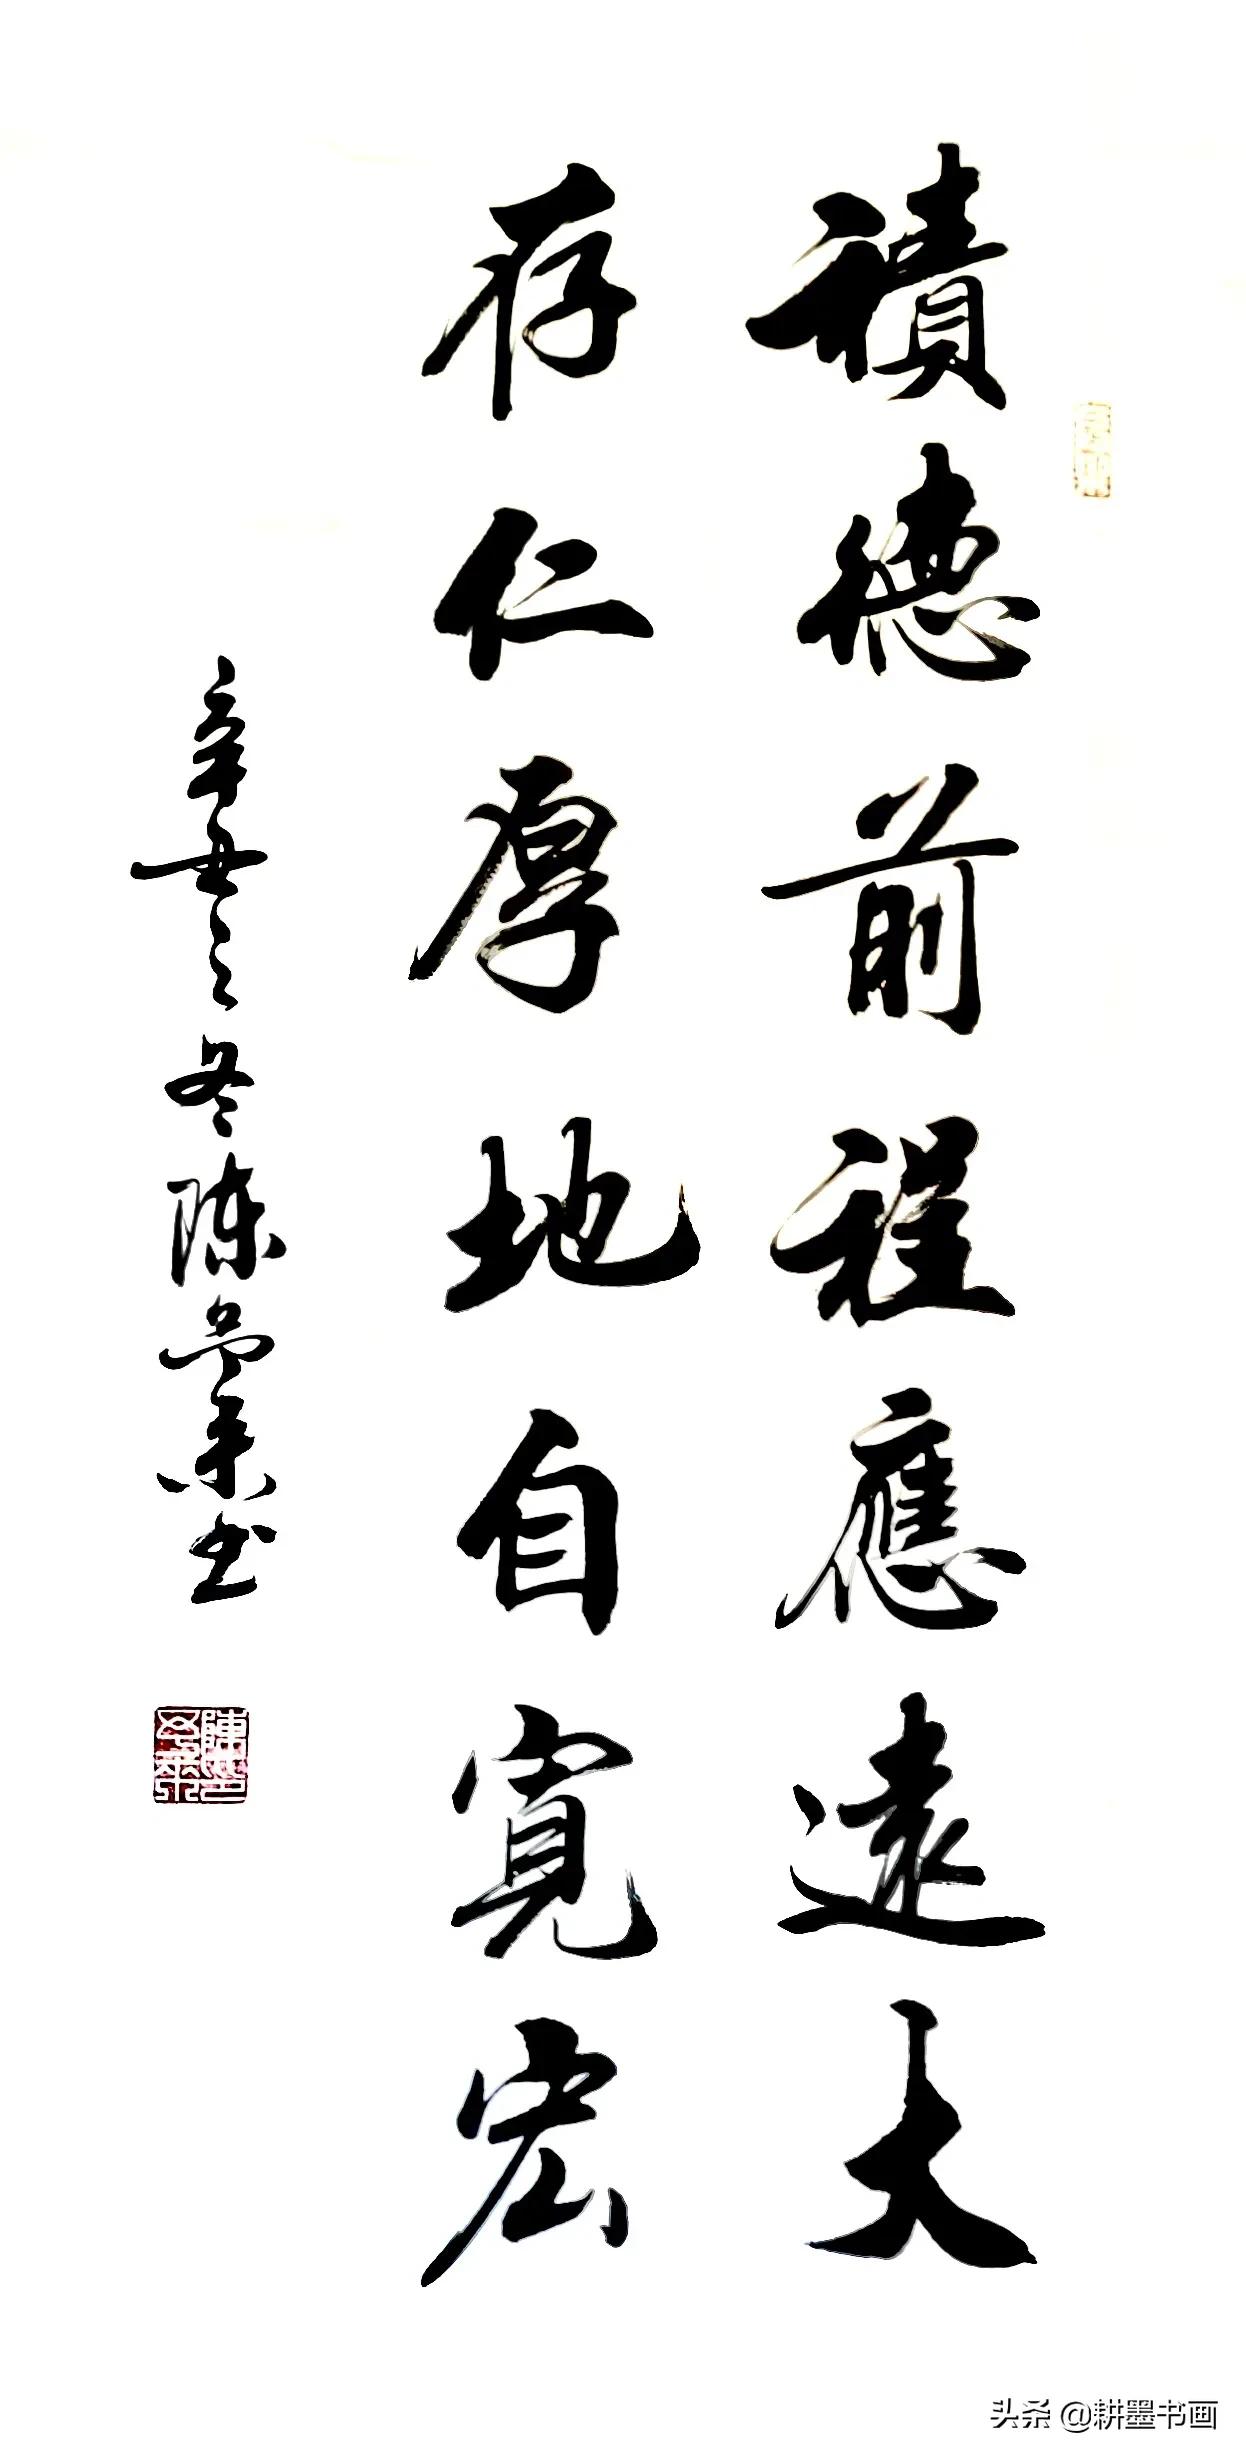 積德前程應遠大
存仁厚地自寬宏
辛丑之冬陈荣书
头条 @耕墨书画